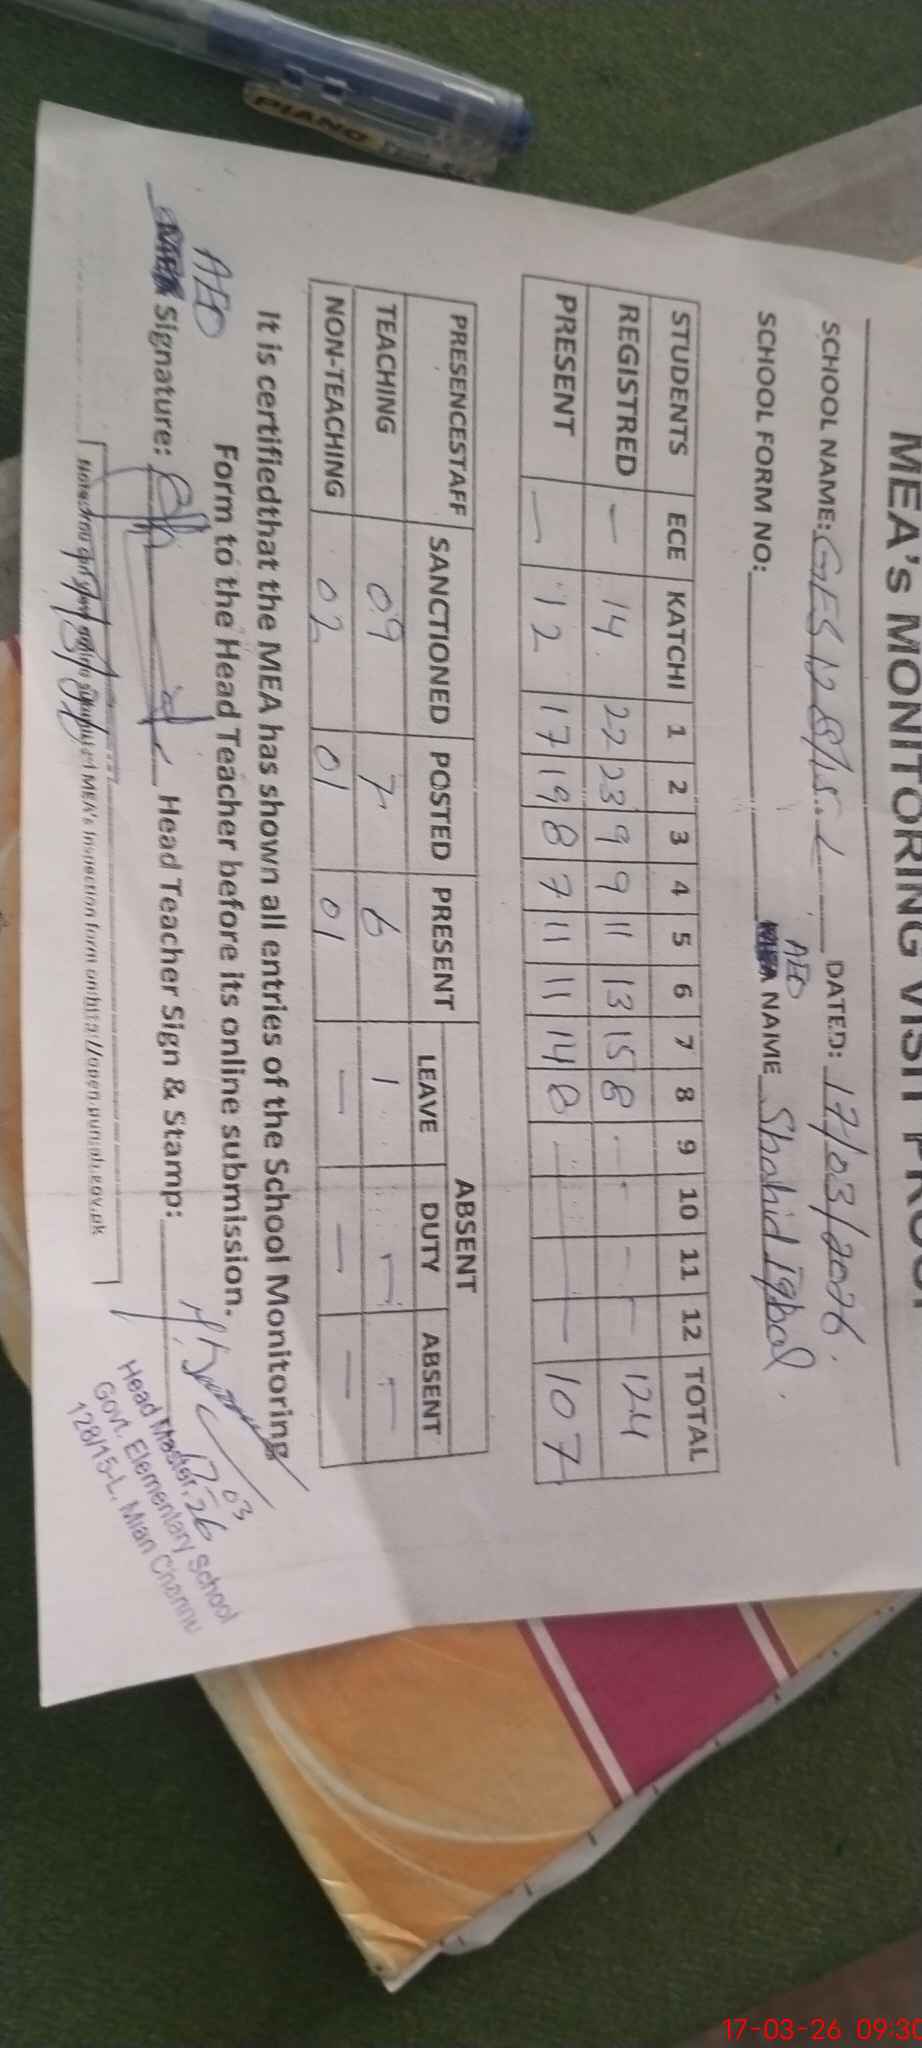 MEA's MONITORING VISIT PROOF
SCHOOL NAME: GES 128/15-L DATED: 17/03/2026
SCHOOL FORM NO: AEO NAME Shahid Iqbal.
STUDENTS ECE KATCHI 1 2 3 4 5 6 7 8 9 10 11 12 TOTAL
REGISTRED — 14 22 23 9 9 11 13 15 8 - - - - 124
PRESENT — 12 17 19 8 7 11 11 14 8 — — — — 107
PRESENCESTAFF SANCTIONED POSTED PRESENT ABSENT
LEAVE DUTY ABSENT
TEACHING 09 7 6 1 — —
NON-TEACHING 02 01 01 — — —
It is certifiedthat the MEA has shown all entries of the School Monitoring
Form to the Head Teacher before its online submission.
AEO
Signature: Head Teacher Sign & Stamp:
17-03-26
Head Master
Govt. Elementary School
128/15-L, Mian Channu
MEA's Inspection form on:http://open.punjab.gov.pk
PIANO
17-03-26 09:30